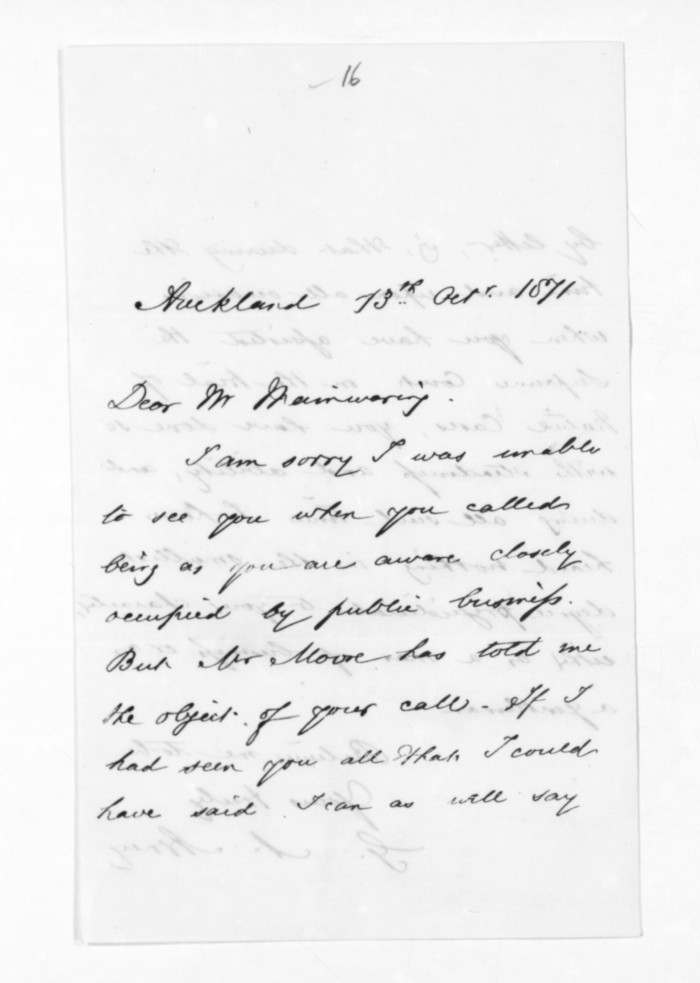 16
Auckland 13th. Octr. 1871
Dear Mr Mainwaring.
I am sorry I was unable
to see you when you called
being as you are aware closely
occupied by public business.
But Mr Moore has told me
the object of your call - If I
had seen you all that I could
have said I can as well say